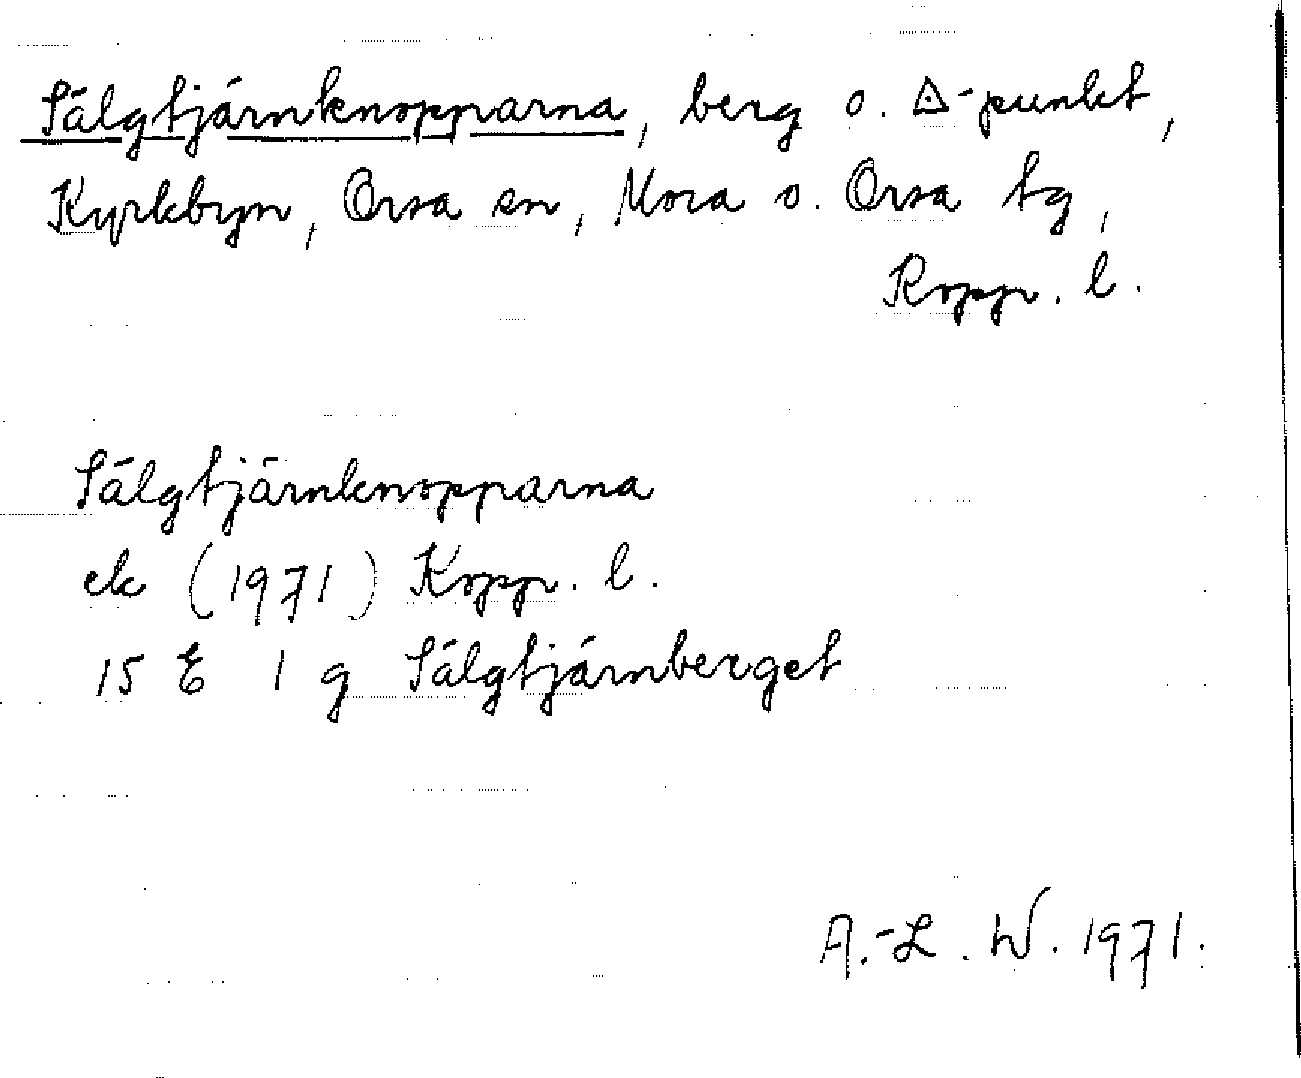 Sälgtjärnknopparna, berg o. △-punkt,
Kyrkbyn, Orsa sn, Mora o. Orsa tg,
Kopp. l.
Sälgtjärnknopparna
ek (1971) Kopp. l.
15 E 1 g Sälgtjärnberget
A.-L. W. 1971.